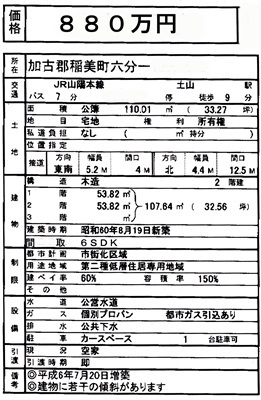 価格 880万円
所在 加古郡稲美町六分一
交通 JR山陽本線 土山 駅
バス 7 分 停 徒歩 9 分
土地 面積 公簿 110.01 ㎡ ( 33.27 坪)
地目 宅地 権利 所有権
私道負担 なし ( ㎡ 持分 )
位置指定
接道 方向 幅員 間口 方向 幅員 間口
東南 5.2 M 4 M 北 4.4 M 12.5 M
建物 構造 木造 2 階建
1 階 53.82 ㎡
2 階 53.82 ㎡ 107.64 ㎡ ( 32.56 坪)
3 階 ㎡
建築時期 昭和60年8月19日新築
間取 6SDK
制限 都市計画 市街化区域
用途地域 第二種低層住居専用地域
建ペイ率 60% 容積率 150%
その他
設備 水道 公営水道
ガス 個別プロパン 都市ガス引込あり
排水 公共下水
駐車 カースペース 1 台駐車可
引渡 現況 空家
引渡時期 即
備考 ◎平成6年7月20日増築
◎建物に若干の傾斜があります